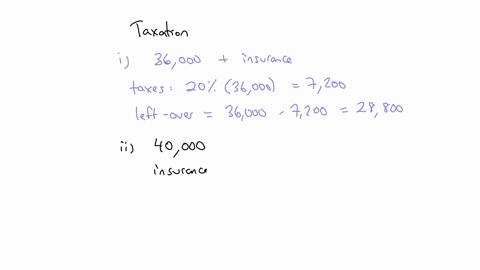 Taxation
i) 36,000 + insurance
taxes: 20% (36,000) = 7,200
left-over = 36,000 - 7,200 = 28,800
ii) 40,000
insurance